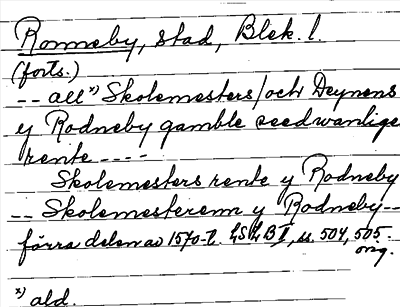 Ronneby, stad, Blek. l.
(forts.)
-- all x) Skolemesters/och Deynens
y Rodneby gamble seedwanlige
rente ----
Skolemesters rente y Rodneby
-- Skolemesterenn y Rodneby --
förra delen av 1570-t. LSLB II, s. 504, 505.
orig.
x) ald.